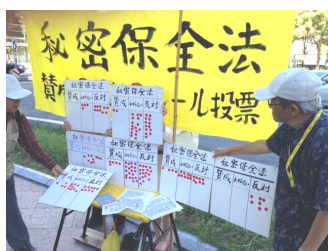 秘密保全法
賛成
ール投票
秘密保全法
賛成 わからない 反対
秘密保全法
賛成 わからない 反対
秘密保全法
賛成
秘密保全法
賛成 わからない 反対
秘密保全法
賛成 わからない 反対
秘密保全法
賛成 わからない 反対